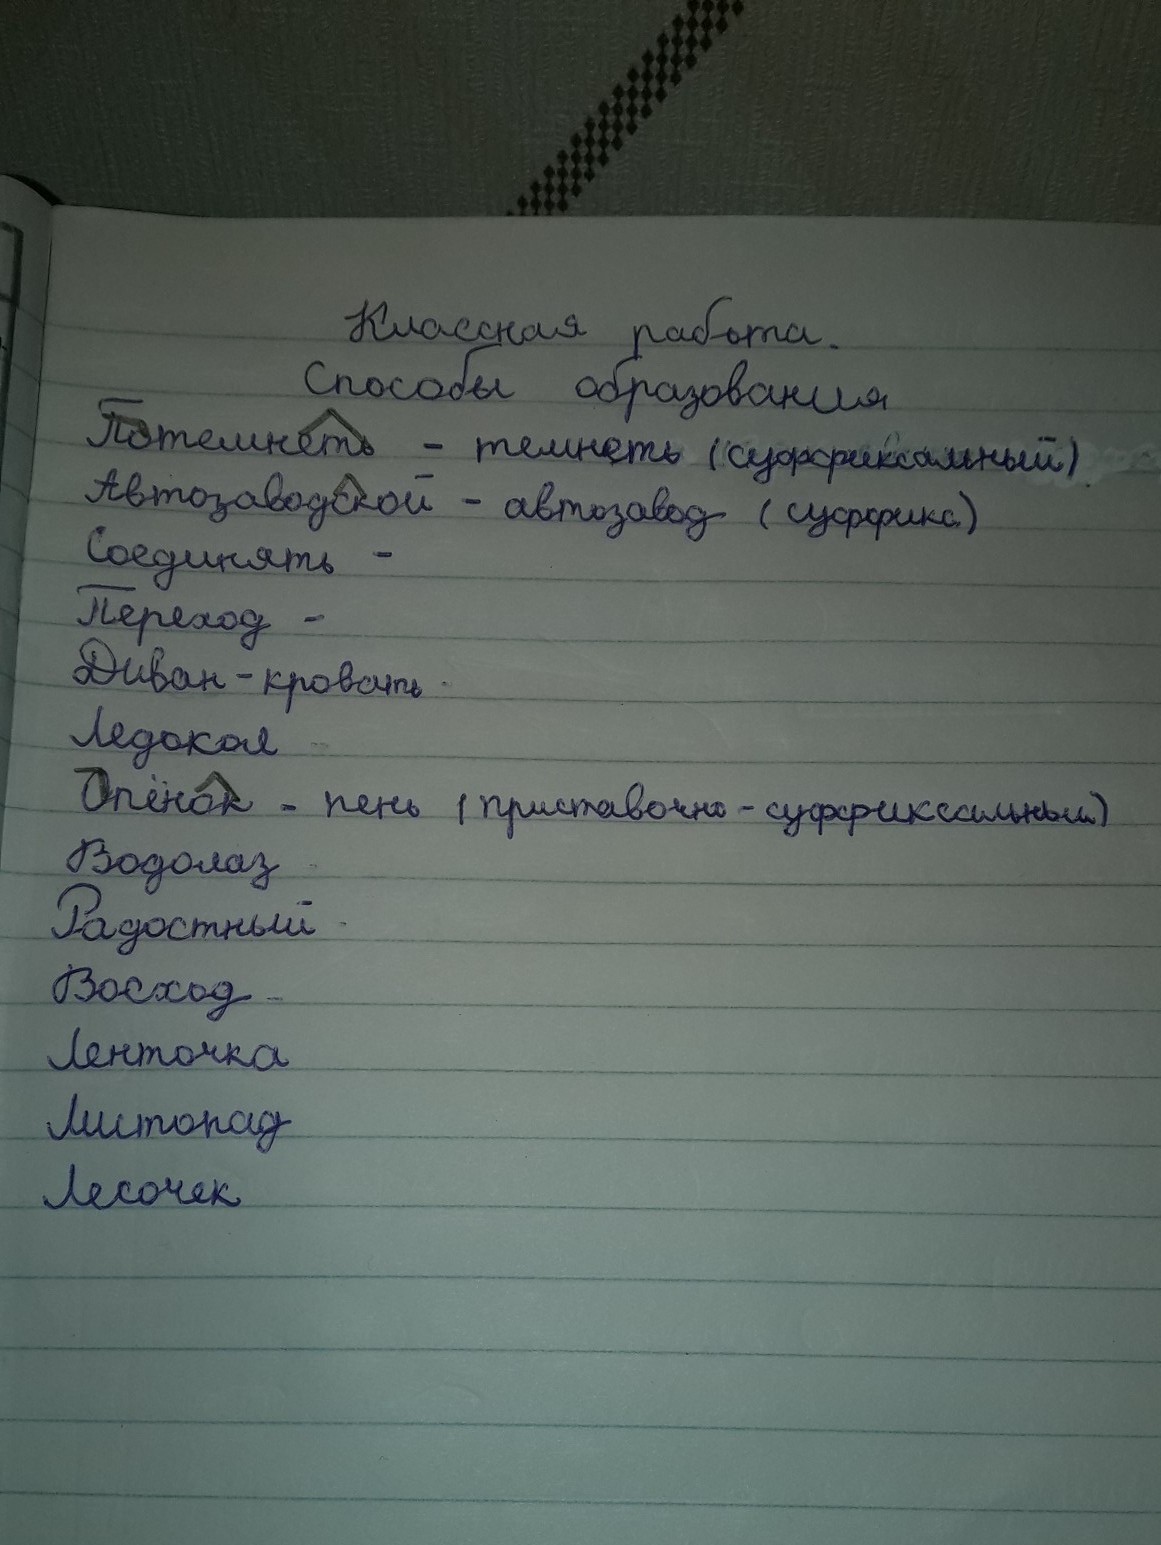 Классная работа.
Способы образования
Потемнеть - темнеть (суффиксальный)
Автозаводской - автозавод (суффикс)
Соединять -
Переход -
Диван - кровать -
Ледокол -
Опёнок - пень (приставочно - суффиксальный)
Водолаз -
Радостный -
Восход -
Ленточка
Листопад
Лесочек